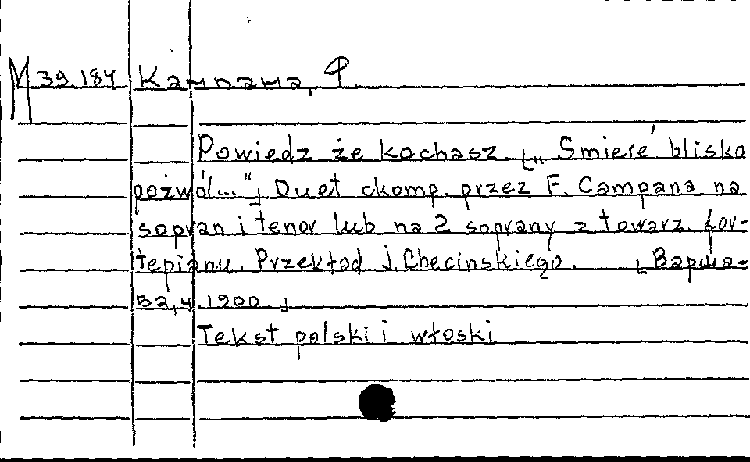 М 39.184 Кампана, Ф.
Powiedz że kochasz. [„Śmierć bliska
pozwól..."] Duet skomp. przez F. Campana na
sopran i tenor lub na 2 soprany z towarz. for-
tepianu. Przekład J. Checinskiego. [Варша-
ва, 1900.]
Tekst polski i włoski